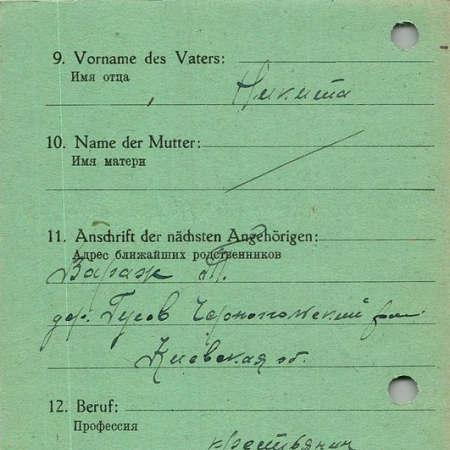 9. Vorname des Vaters:
Имя отца
Никита
10. Name der Mutter:
Имя матери
11. Anschrift der nächsten Angehörigen:
Адрес ближайших родственников
дер.
Киевская об.
12. Beruf:
Профессия
крестьянин